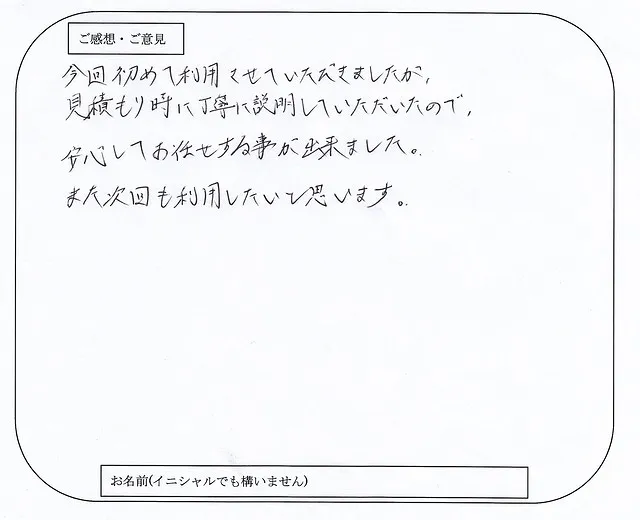 ご感想・ご意見
今回初めて利用させていただきましたが、
見積もり時に丁寧に説明していただいたので、
安心してお任せする事が出来ました。
また次回も利用したいと思います。
お名前(イニシャルでも構いません)